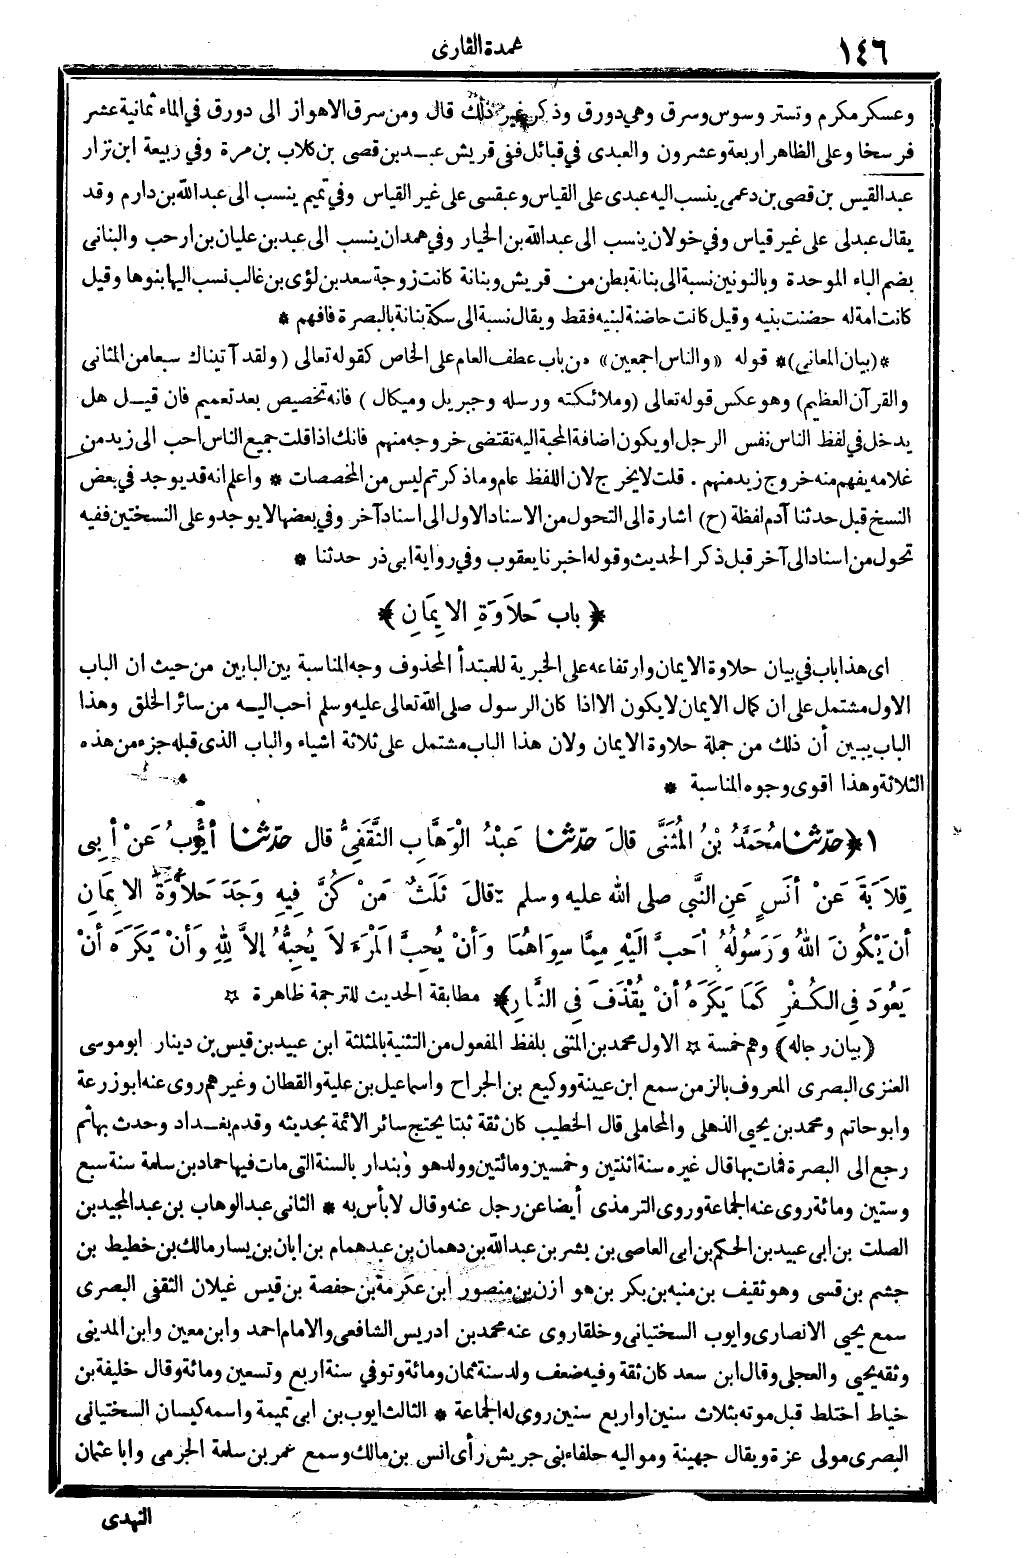 ١٤٦
عمدة القارى
وعسكر مكرم وتستر وسوس وسرق وهي دورق وذكر غير ذلك قال ومن سرق الاهواز الى دورق في الماء ثمانية عشر
فرسخا وعلى الظاهر اربعة وعشرون والعبدى في قبائل ففى قريش عبد بن قصى بن كلاب بن مرة وفي ربيعة ابن نزار
عبد القيس بن قصى بن دعمى ينسب اليه عبدى على القياس وعبقسى على غير القياس وفي تميم ينسب الى عبد الله بن دارم وقد
يقال عبدلى على غير قياس وفي خولان ينسب الى عبد الله بن الخيار وفي همدان ينسب الى عبد بن عليان بن ارحب والبنانى
بضم الباء الموحدة وبالنونين نسبة الى بنانة بطن من قريش وبنانة كانت زوجة سعد بن لؤى بن غالب نسب اليها بنوها وقيل
كانت امة له حضنت بنيه وقيل كانت حاضنة لبنيه فقط ويقال نسبة الى سكة بنانة بالبصرة فافهم *
*(بيان المعانى)* قوله «والناس اجمعين» من باب عطف العام على الخاص كقوله تعالى (ولقد آتيناك سبعا من المثانى
والقرآن العظيم) وهو عكس قوله تعالى (وملائكته ورسله وجبريل وميكال) فانه تخصيص بعد تعميم فان قيل هل
يدخل في لفظ الناس نفس الرجل او يكون اضافة المحبة اليه تقتضى خروجه منهم فانك اذا قلت جميع الناس احب الى زيد من
غلامه يفهم منه خروج زيد منهم . قلت لا يخرج لان اللفظ عام وما ذكر تم ليس من المخصصات * واعلم انه قد يوجد في بعض
النسخ قبل حدثنا آدم لفظة (ح) اشارة الى التحول من الاسناد الاول الى اسناد آخر وفي بعضها لا يوجد وعلى النسختين ففيه
تحول من اسناد الى آخر قبل ذكر الحديث وقوله اخبرنا يعقوب وفي رواية ابى ذر حدثنا *
﴿ باب حَلاَوَةِ الايِمَانِ ﴾
اى هذا باب في بيان حلاوة الايمان وارتفاعه على الخبرية للمبتدأ المحذوف وجه المناسبة بين البابين من حيث ان الباب
الاول مشتمل على ان كمال الايمان لا يكون الا اذا كان الرسول صلى الله تعالى عليه وسلم احب اليه من سائر الخلق وهذا
الباب يبين أن ذلك من جملة حلاوة الايمان ولان هذا الباب مشتمل على ثلاثة اشياء والباب الذى قبله جزء من هذه
الثلاثة وهذا اقوى وجوه المناسبة *
١ ﴿حدّثنا مُحَمَّدُ بْنُ المُثَنَّى قالَ حدّثنا عَبْدُ الْوَهَّابِ الثَّقَفِيُّ قال حدّثنا أيُّوبُ عَنْ أَبِى
قِلاَبَةَ عَنْ أنَسٍ عَنِ النَّبي صلى الله عليه وسلم قالَ ثَلَثٌ مَنْ كُنَّ فِيهِ وَجَدَ حَلاَوَةَ الايِمَانِ
أنْ يَكُونَ اللهُ وَرَسُولُهُ أحَبَّ الَيْهِ مِمَّا سِوَاهُمَا وَأنْ يُحِبَّ المَرْءَ لاَ يُحِبُّهُ إلاَّ للهِ وَأنْ يَكْرَهَ أنْ
يَعُودَ فِي الكُفْرِ كَمَا يَكْرَهُ أنْ يُقْذَفَ فِي النَّارِ﴾ مطابقة الحديث للترجمة ظاهرة ☆
(بيان رجاله) وهم خمسة ☆ الاول محمد بن المثنى بلفظ المفعول من التثنية بالمثلثة ابن عبيد بن قيس بن دينار ابو موسى
العنزى البصرى المعروف بالزمن سمع ابن عيينة ووكيع بن الجراح واسماعيل بن علية والقطان وغيرهم روى عنه ابو زرعة
وابو حاتم ومحمد بن يحيى الذهلى والمحاملى قال الخطيب كان ثقة ثبتا يحتج سائر الائمة بحديثه وقدم بغداد وحدث بها ثم
رجع الى البصرة فمات بها قال غيره سنة اثنتين وخمسين ومائتين وولد هو وبندار بالسنة التى مات فيها حماد بن سلمة سنة سبع
وستين ومائة روى عنه الجماعة وروى الترمذى أيضا عن رجل عنه وقال لا بأس به * الثانى عبد الوهاب بن عبد المجيد بن
الصلت بن ابى عبيد بن الحكم بن ابى العاصى بن بشر بن عبد الله بن دهمان بن عبد همام بن ابان بن يسار مالك بن خطيط بن
جشم بن قسى وهو ثقيف بن منبه بن بكر بن هوازن بن منصور ابن عكرمة بن حفصة بن قيس غيلان الثقفى البصرى
سمع يحيى الانصارى وايوب السختيانى وخلقا روى عنه محمد بن ادريس الشافعى والامام احمد وابن معين وابن المدينى
وثقه يحيى والعجلى وقال ابن سعد كان ثقة وفيه ضعف ولد سنة ثمان ومائة وتوفي سنة اربع وتسعين ومائة وقال خليفة بن
خياط اختلط قبل موته بثلاث سنين او اربع سنين روى له الجماعة * الثالث ايوب بن ابى تميمة واسمه كيسان السختيانى
البصرى مولى عزة ويقال جهينة ومواليه حلفاء بنى جريش رأى انس بن مالك وسمع عمر بن سلمة الجرمى وابا عثمان
النهدى